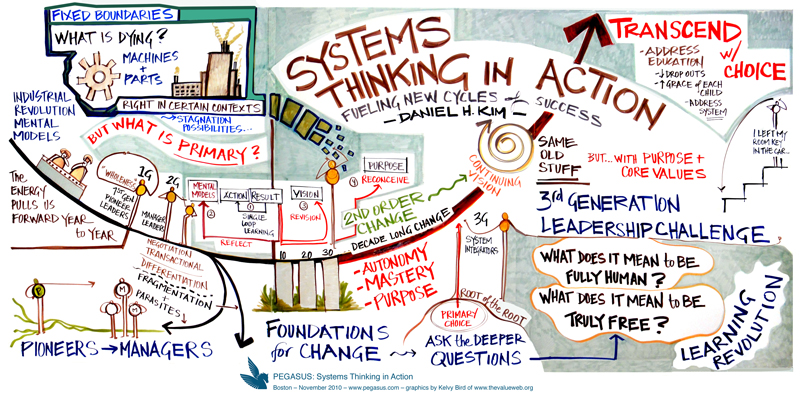 FIXED BOUNDARIES
WHAT IS DYING?
MACHINES
+
PARTS
INDUSTRIAL
REVOLUTION
MENTAL
MODELS
RIGHT IN CERTAIN CONTEXTS
→ STAGNATION
POSSIBILITIES...
BUT WHAT IS PRIMARY?
The
ENERGY
PULLS US
FORWARD YEAR
to YEAR
WHOLENESS
1G
1ST GEN
PIONEER
LEADERS
2G
MANAGER
LEADER
NEGOTIATION
TRANSACTIONAL
DIFFERENTIATION
FRAGMENTATION
+
PARASITES
P
M
M
M
PIONEERS → MANAGERS
SYSTEMS
THINKING IN ACTION
FUELING NEW CYCLES of SUCCESS
- DANIEL H. KIM -
MENTAL
MODELS
ACTION
RESULT
VISION
PURPOSE
1
SINGLE
LOOP
LEARNING
2
REFLECT
3
REVISION
4
RECONCEIVE
2ND ORDER
CHANGE
DECADE LONG CHANGE
10 20 30
CONTINUING
VISION
SAME
OLD
STUFF
- AUTONOMY
- MASTERY
- PURPOSE
3G
SYSTEM
INTEGRATORS
ROOT of the ROOT
PRIMARY
CHOICE
FOUNDATIONS
for CHANGE
ASK the DEEPER
QUESTIONS
TRANSCEND
w/
CHOICE
- ADDRESS
EDUCATION
- ↓ DROP OUTS
↑ GRACE of EACH
CHILD
- ADDRESS
SYSTEM
I LEFT MY
ROOM KEY
IN THE CAR...
BUT... WITH PURPOSE +
CORE VALUES
3rd GENERATION
LEADERSHIP CHALLENGE
WHAT DOES IT MEAN to BE
FULLY HUMAN?
WHAT DOES IT MEAN to BE
TRULY FREE?
LEARNING
REVOLUTION
PEGASUS: Systems Thinking in Action
Boston – November 2010 – www.pegasus.com – graphics by Kelvy Bird of www.thevalueweb.org